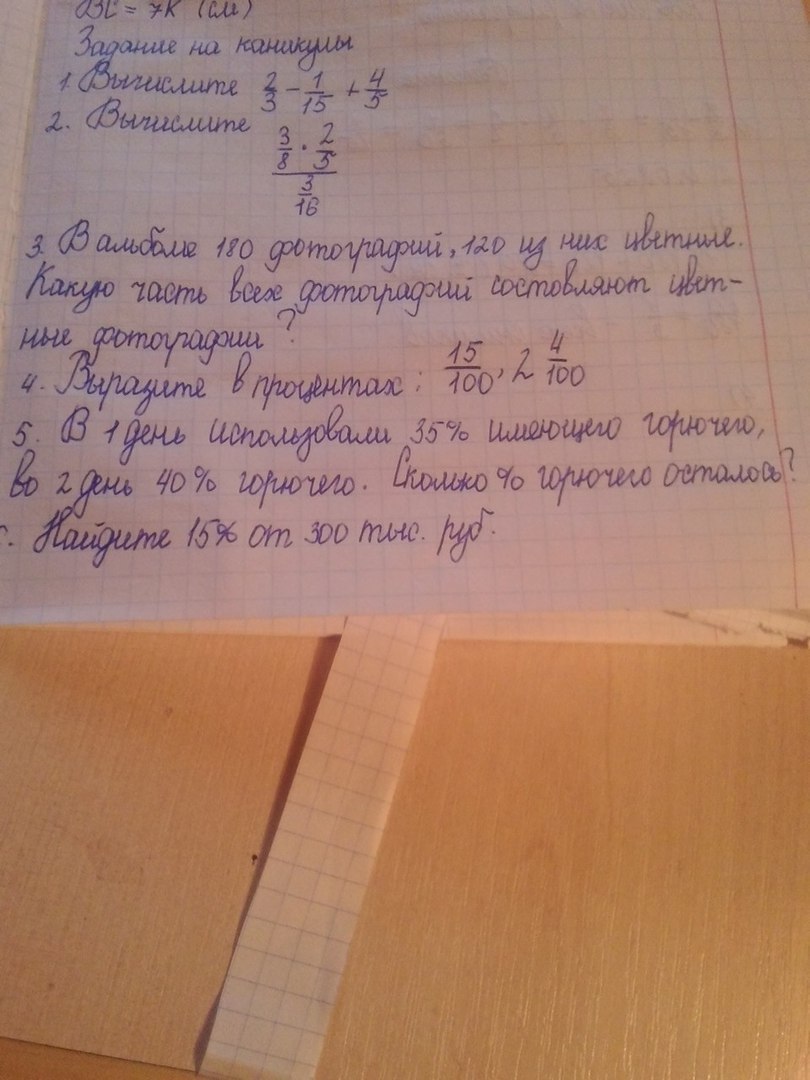 BC = 7К (см)
Задание на каникулы
1. Вычислите 2/3 - 1/15 + 4/5
2. Вычислите
3/8 · 2/5
3/16
3. В альбоме 180 фотографий, 120 из них цветные.
Какую часть всех фотографий состовляют цвет-
ные фотографии?
4. Выразите в процентах: 15/100, 2 4/100
5. В 1 день использовали 35% имеющего горючего,
во 2 день 40% горючего. Сколько % горючего осталось?
Найдите 15% от 300 тыс. руб.